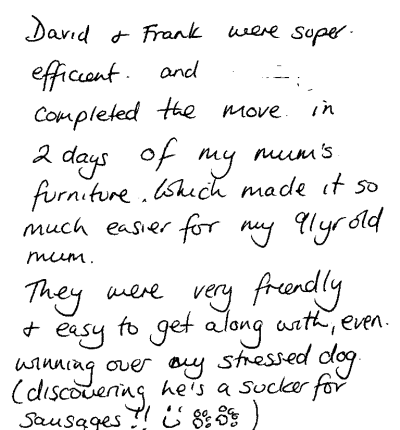 David & Frank were super.
efficient. and
completed the move in
2 days of my mum's
furniture. Which made it so
much easier for my 91yr old
mum.
They were very friendly
& easy to get along with, even.
winning over my stressed dog.
(discovering he's a sucker for
sausages!! )